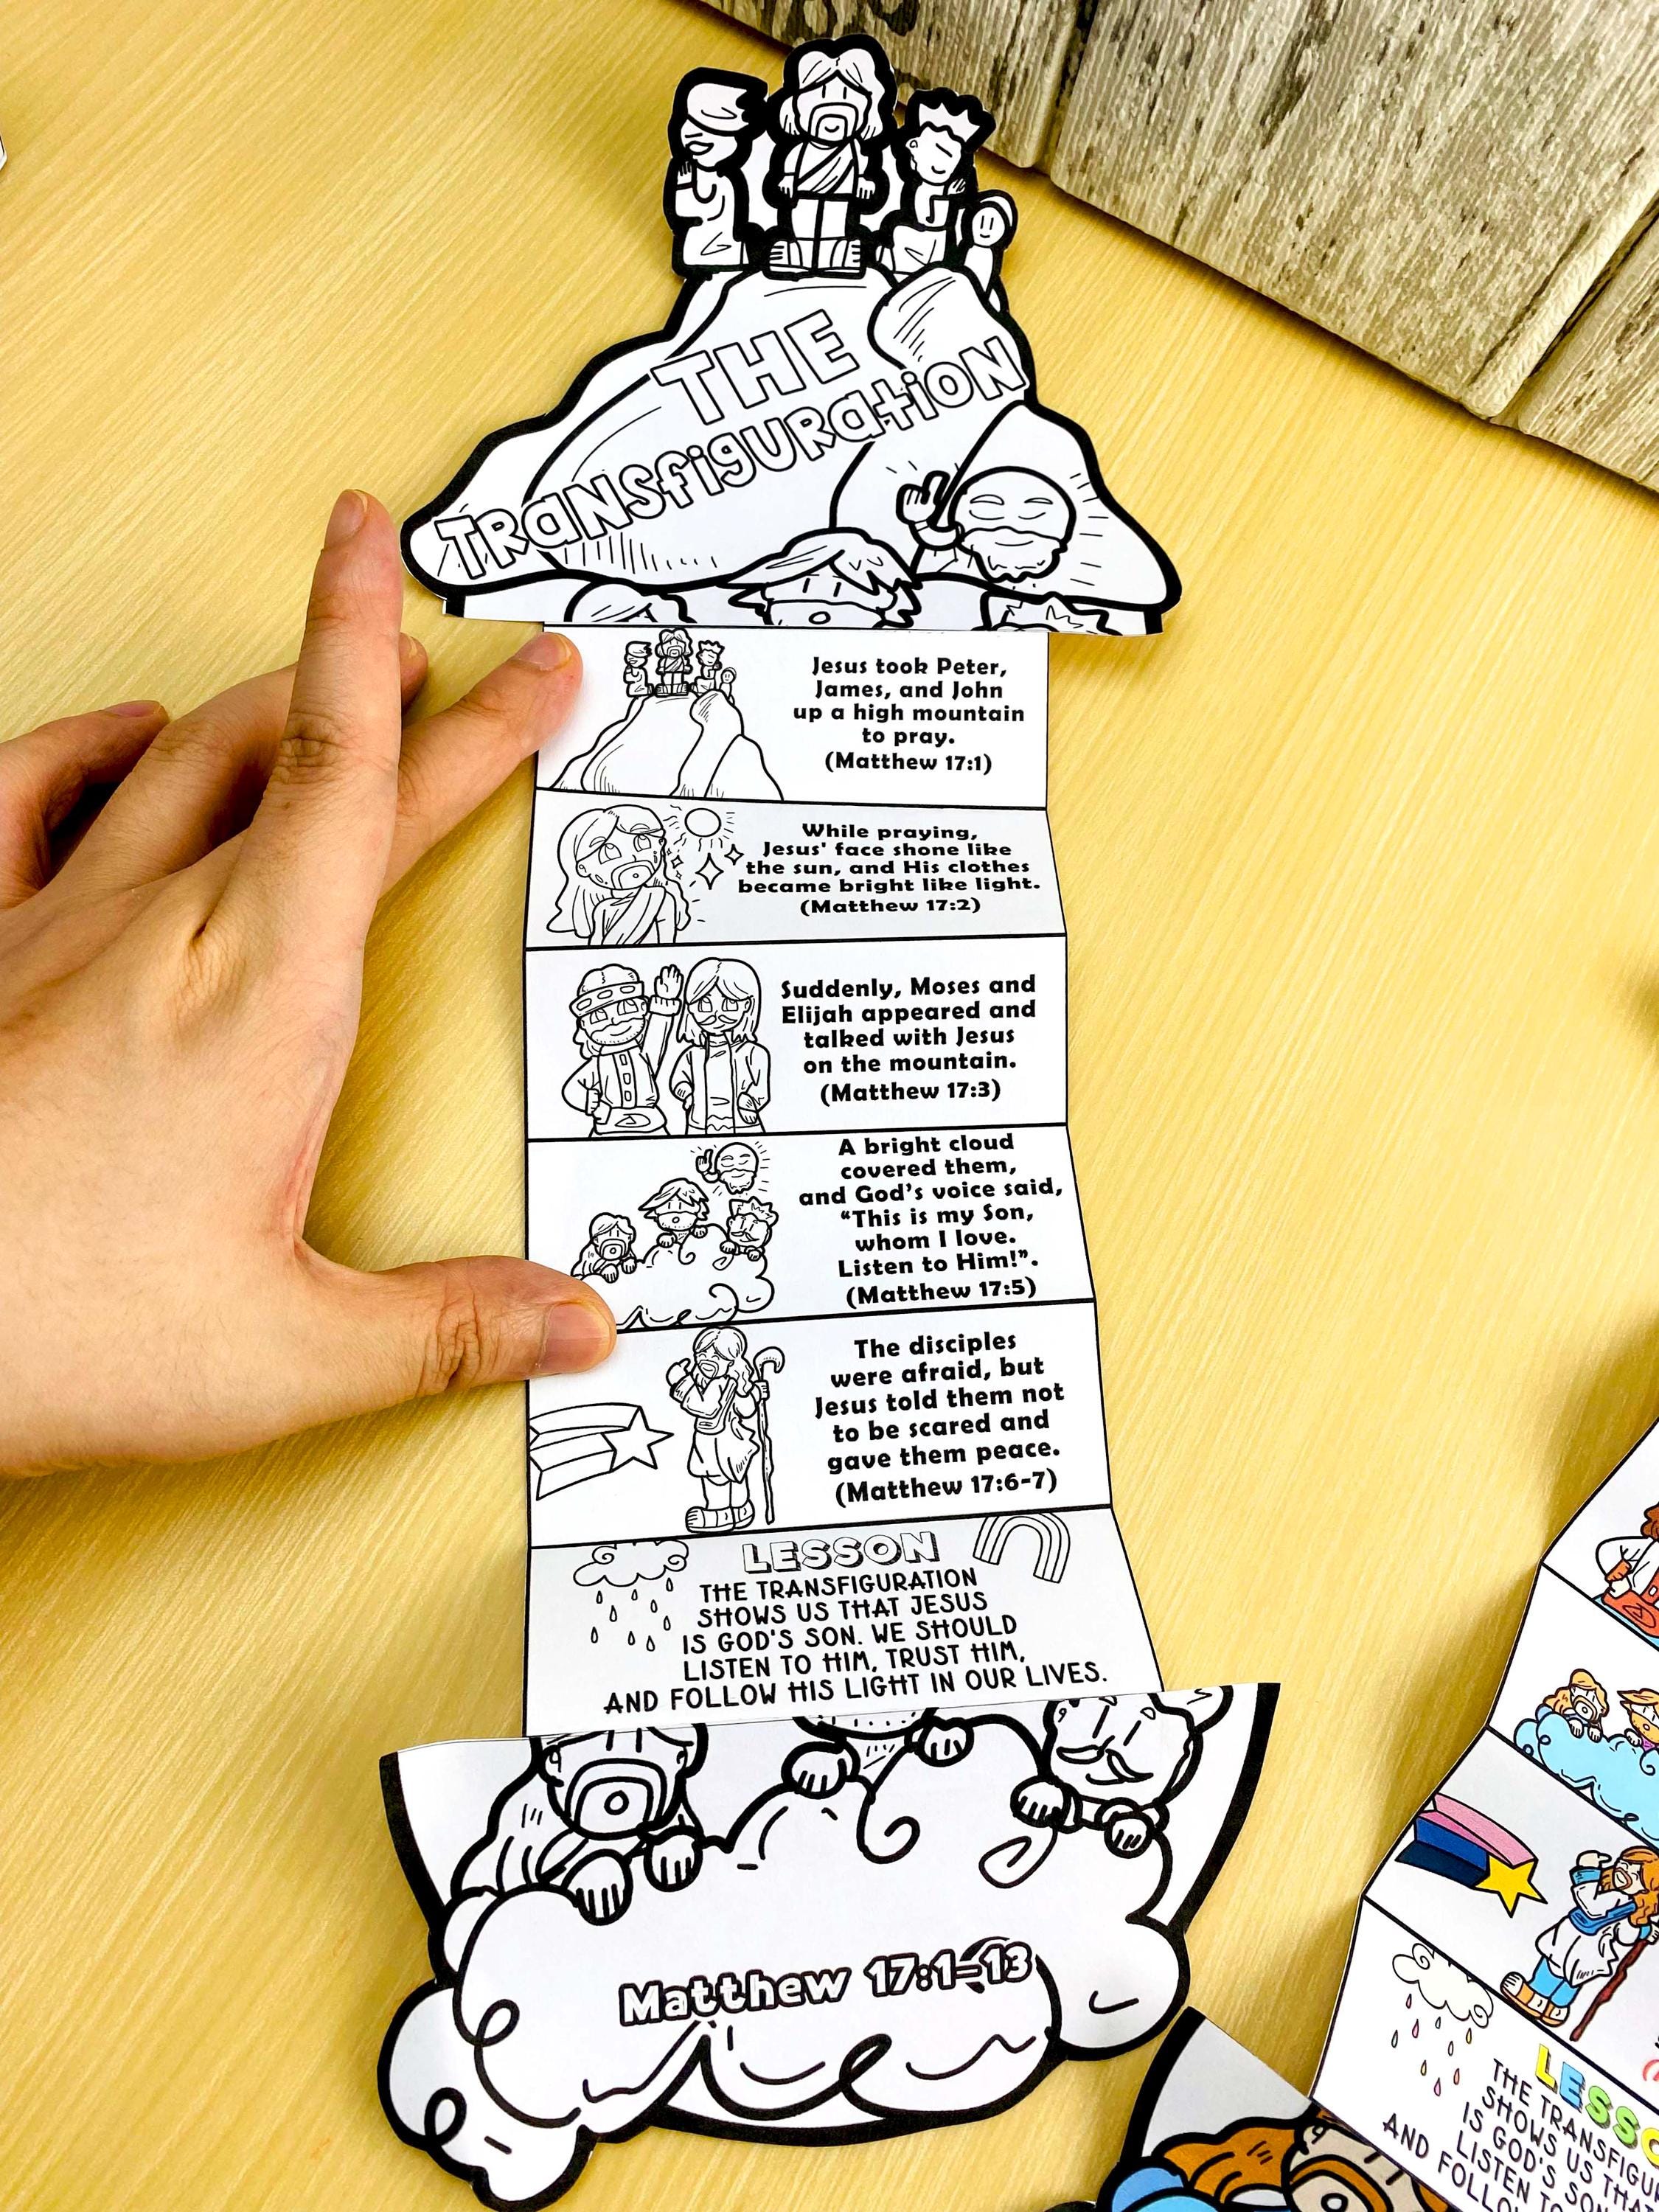 THE
TRaNSfiguRa+iON
Jesus took Peter,
James, and John
up a high mountain
to pray.
(Matthew 17:1)
While praying,
Jesus' face shone like
the sun, and His clothes
became bright like light.
(Matthew 17:2)
Suddenly, Moses and
Elijah appeared and
talked with Jesus
on the mountain.
(Matthew 17:3)
A bright cloud
covered them,
and God's voice said,
“This is my Son,
whom I love.
Listen to Him!”.
(Matthew 17:5)
The disciples
were afraid, but
Jesus told them not
to be scared and
gave them peace.
(Matthew 17:6-7)
LESSON
THE TRANSFIGURATION
SHOWS US THAT JESUS
IS GOD'S SON. WE SHOULD
LISTEN TO HIM, TRUST HIM,
AND FOLLOW HIS LIGHT IN OUR LIVES.
Matthew 17:1-13
LESSO
THE TRANSFIGU
SHOWS US THA
IS GOD'S SON
LISTEN TO
AND FOLLO